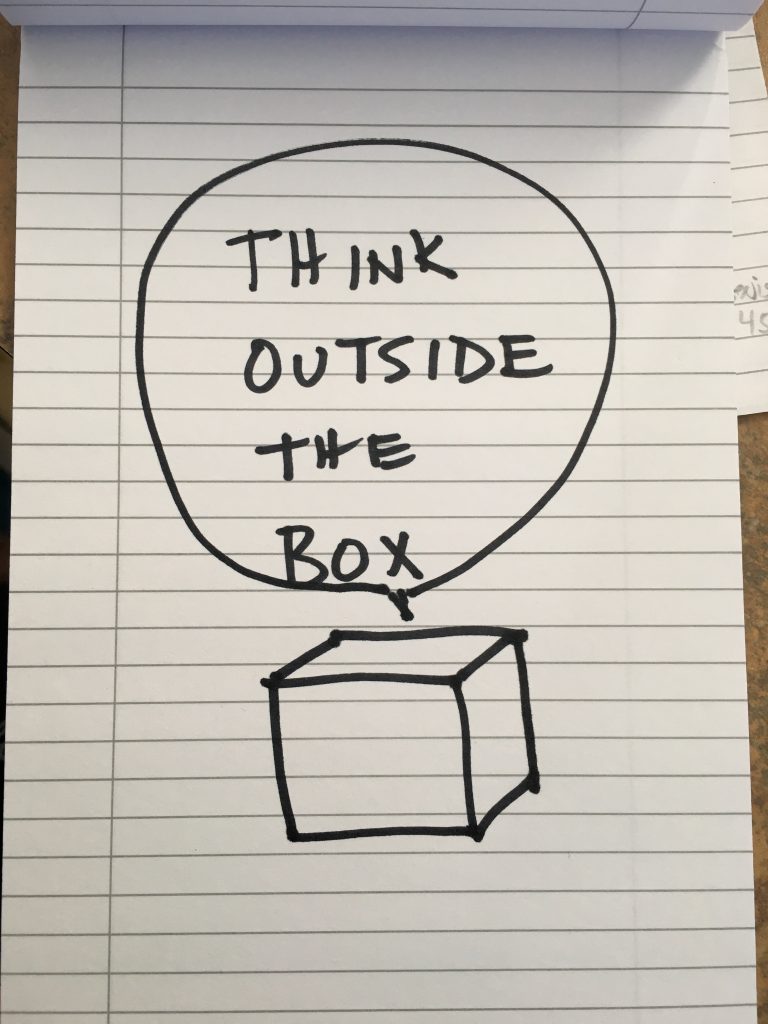 THINK
OUTSIDE
THE
BOX